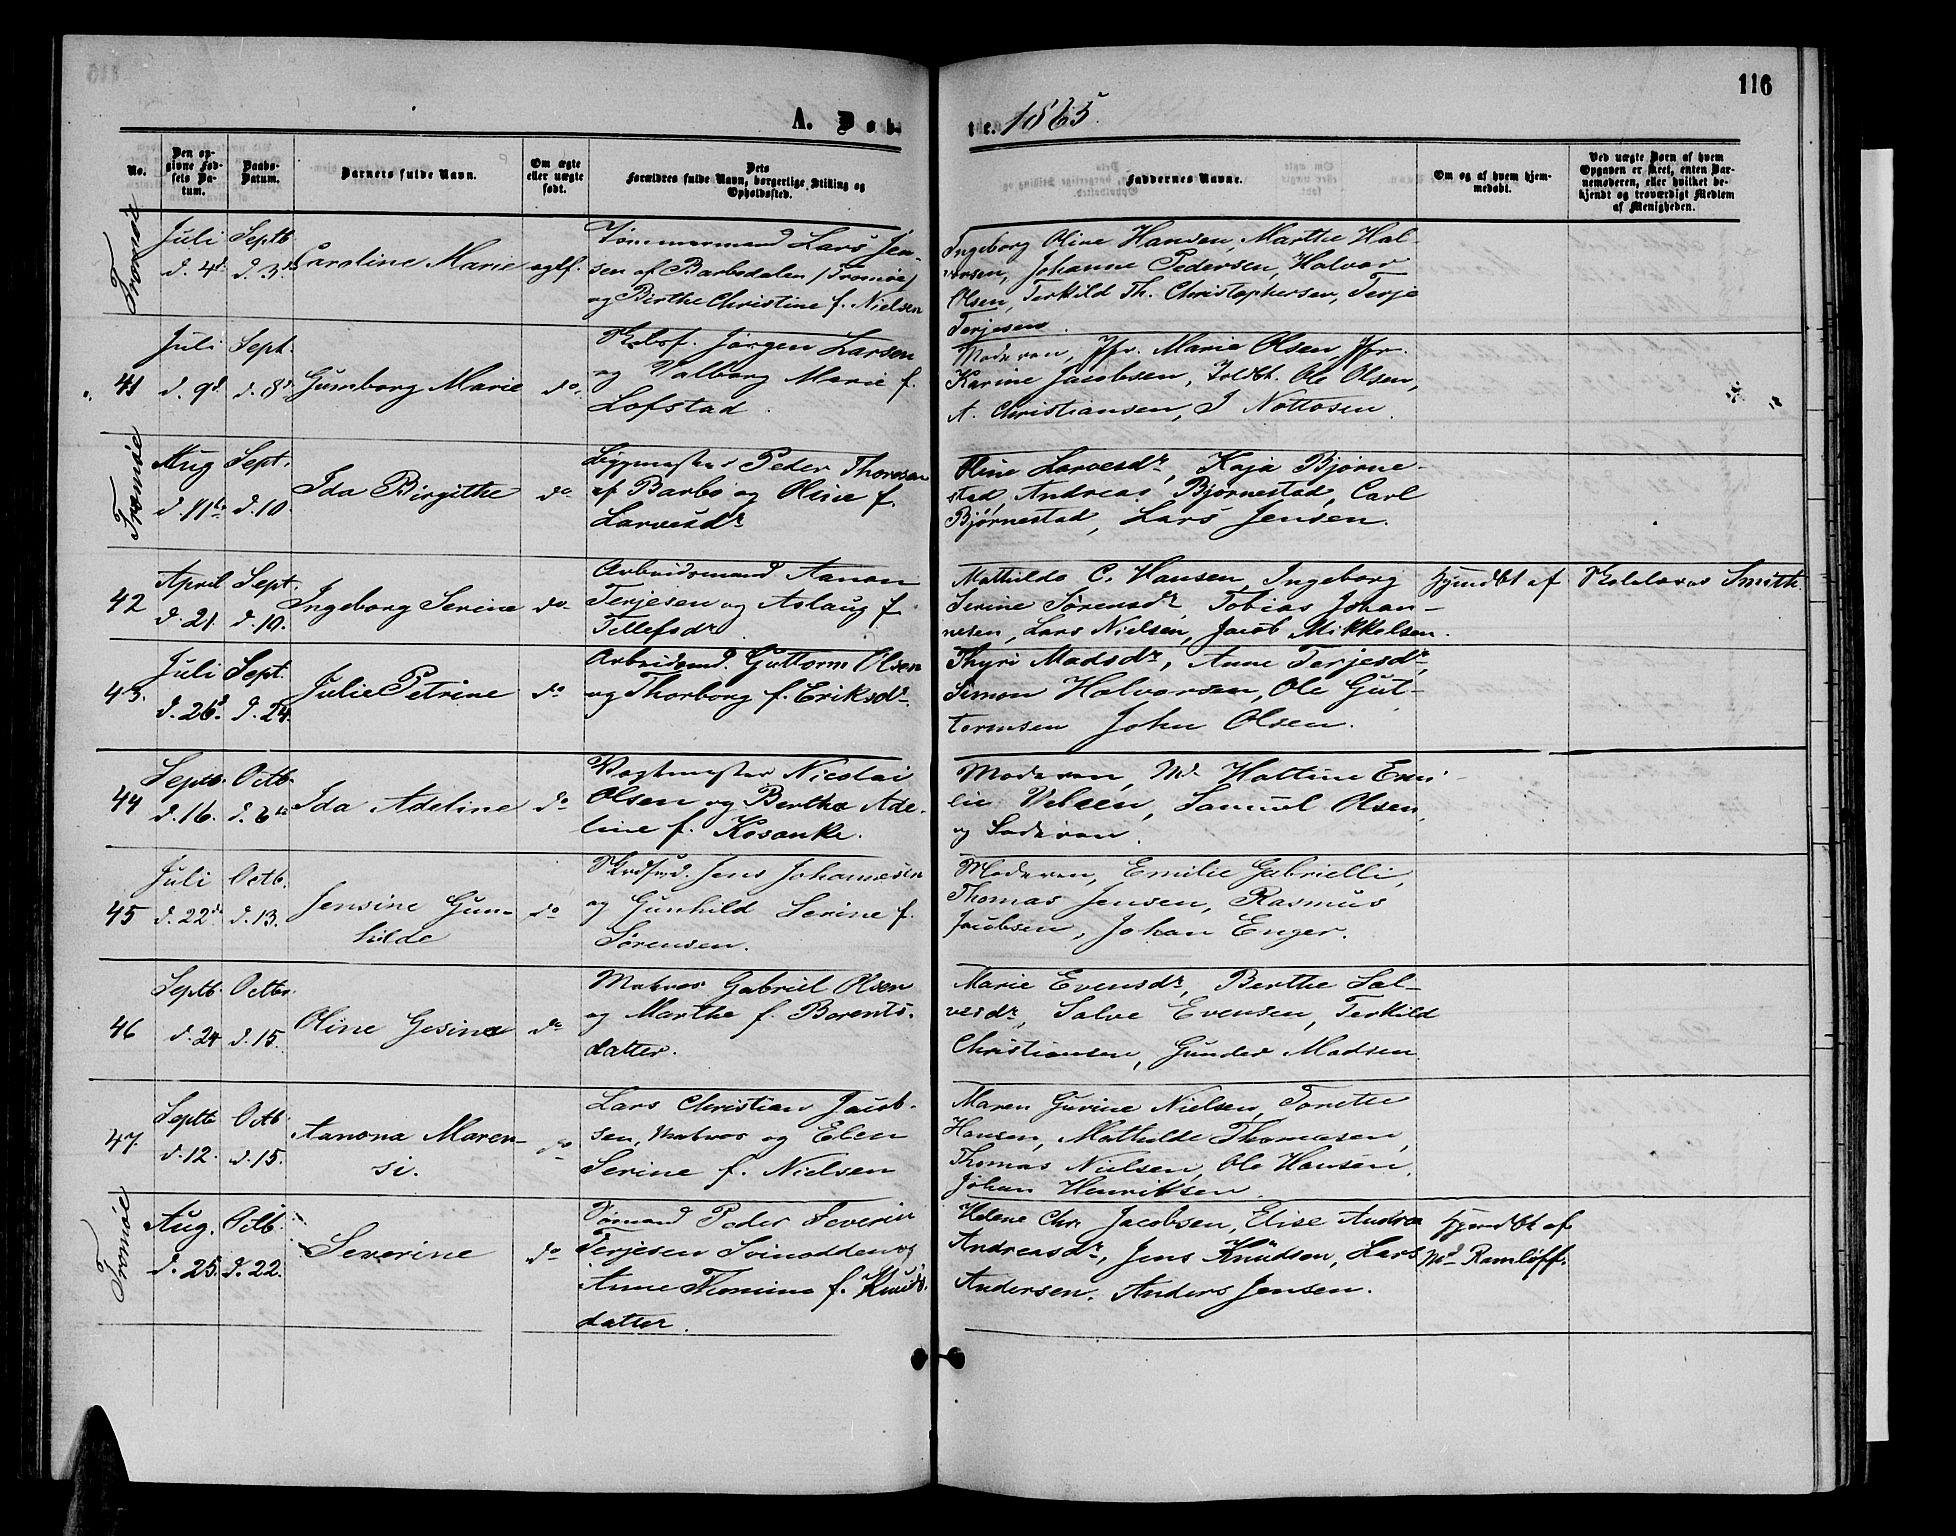 116
A. Døb-
te. 1865.
No.
Den op-
givne Fød-
sels Da-
tum.
Daabs-
Datum.
Barnets fulde Navn.
Om ægte
eller uægte
født.
Dets
Forældres fulde Navn, borgerlige Stilling og
Opholdssted.
Faddernes Navne.
Om og af hvem hjem-
medøbt.
Ved uægte Børn af hvem
Opgaven er skeet, enten Bar-
nemoderen, eller hvilket be-
kjendt og troværdigt Medlem
af Menigheden.
Tromøe
Juli
d. 4de
Septb.
d. 3de
Caroline Marie
ægtf.
Tømmermand Lars Jen-
sen af Barbodalen /Tromøe/
og Birthe Christine f. Nielsen
Ingeborg Oline Hansen, Marthe Hal-
vorsen, Johanne Pedersen, Halvor
Olsen, Terkild Th. Christophersen, Terje
Terjesen.
41
Juli
d. 9d.
Sept.
d. 8d.
Gumborg Marie
do.
Jørgen Larsen
og Valborg Marie f.
Lofstad.
Moderen, Jfr. Marie Olsen, Jfr.
Karine Jacobsen, Toldbt. Ole Olsen,
A. Christiansen, J Nottosen.
Tromøe
Aug
d. 11te
Sept.
d. 10.
Ida Birgithe
do
Peder Thorsen
af Barbo og Oline f.
Larvesdr.
Oline Larvesdr, Kaja Bjørne-
stad, Andreas Bjørnestad, Carl
Bjørnestad, Lars Jensen.
42
April
d. 21.
Sept.
d. 10.
Ingeborg Serine
do
Arbeidsmand Aanon
Terjesen og Aslaug f.
Tellefsdr.
Mathilde C. Hansen, Ingeborg
Serine Sørensdr, Tobias Johan-
nesen, Lars Nielsen, Jacob Mikkelsen.
hjemdbt af
Smith
43.
Juli
d. 26d.
Sept.
d. 24.
Julie Petrine
do
Arbeidsmd. Guttorm Olsen
og Thorborg f. Eriksdr.
Thyri Madsdr, Anne Terjesdr,
Simon Halvorsen, Ole Gut-
tormsen John Olsen.
44
Septb.
d. 16.
Octb.
d. 6te
Ida Adeline
do
Vagtmester Nicolai
Olsen og Bertha Ade-
line f. Kosanke.
Moderen, Md. Hattine Emi-
lie Velsen, Samuel Olsen,
og Faderen.
45
Juli
d. 22d.
Octb.
d. 13.
Jensine Gun-
hilde
do
Jens Johannesen
og Gunhild Serine f.
Sørensen.
Moderen, Emilie Gabrielli,
Thomas Jensen, Rasmus
Jacobsen, Johan Enger.
46
Septb.
d. 24
Octbr.
d. 15.
Oline Gesine
do
Matros Gabriel Olsen
og Marthe f. Berents-
datter.
Marie Evensdr, Berthe Sal-
vesdr, Salve Evensen, Terkild
Christiansen, Gunder Madsen.
47.
Septb
d. 12.
Octb.
d. 15.
Aanona Maren-
si.
do
Lars Christian Jacob-
sen, Matros og Elen
Serine f. Nielsen
Maren Gurine Nielsen, Torette
Hansen, Mathilde Thomasen,
Thomas Nielsen, Ole Hansen,
Johan Henriksen.
Tromøe
Aug.
d. 25.
Octb.
d. 22.
Severine
do
Sømand Peder Severin
Terjesen Svinodden og
Anne Thomine f. Knuds-
datter.
Helene Chr. Jacobsen, Elise Andrea
Andreasdr, Jens Knudsen, Lars
Andersen, Anders Jensen.
hjemdbt af
Md Ramløff.